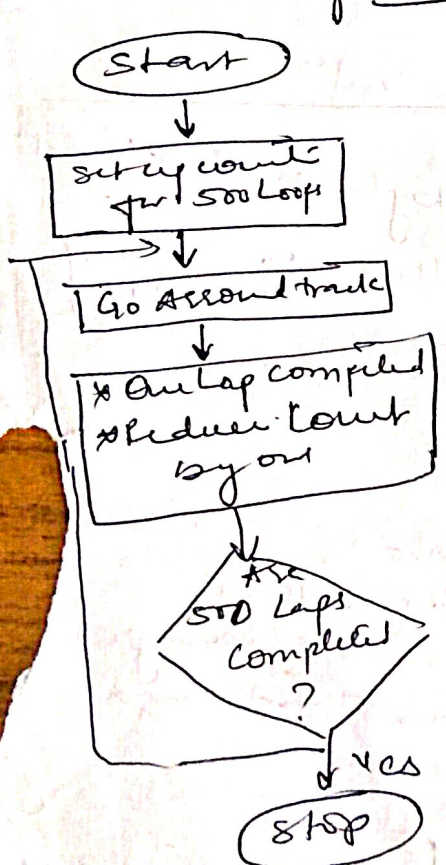 Start
Set up count
for 500 Loops
Go Arround track
* One Lap Compiled
* Reduce Count
by one
Are
500 Laps
Completed
?
Yes
Stop